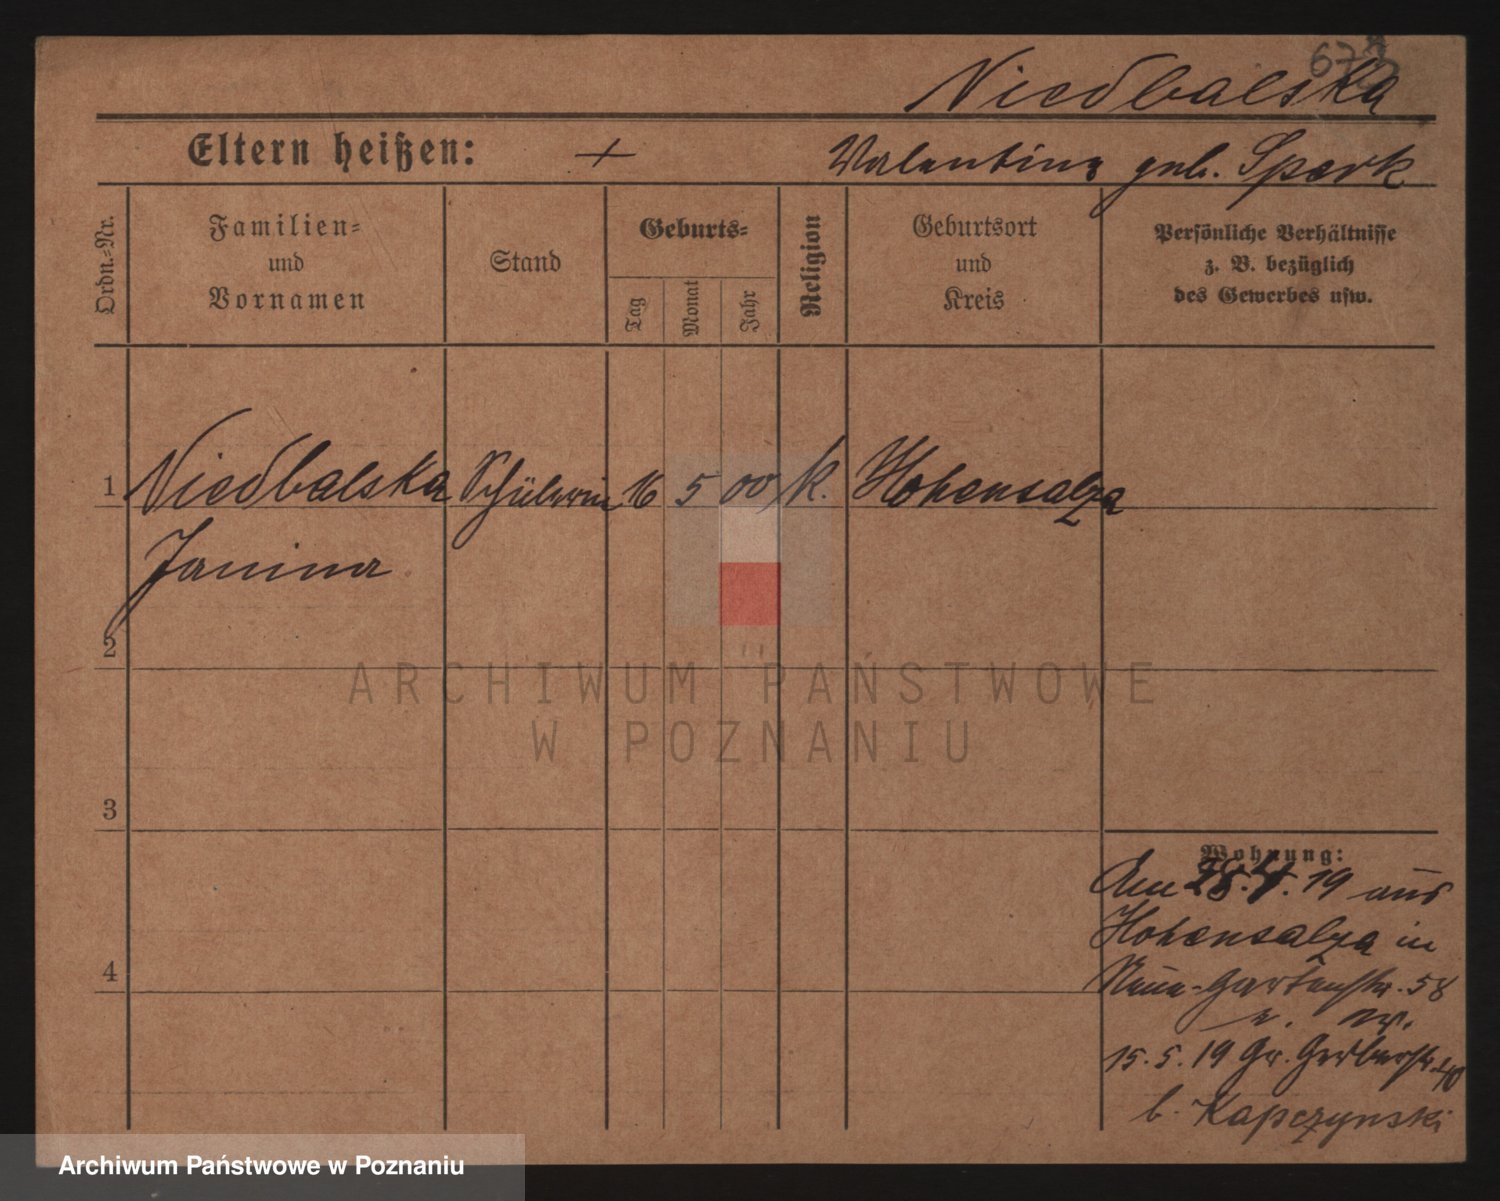 673
Niedbalska
Eltern heißen: + Valentine geb. Spark
Ordn.=Nr.
Familien=
und
Vornamen
Stand
Geburts=
Tag
Monat
Jahr
Religion
Geburtsort
und
Kreis
Persönliche Verhältnisse
z. B. bezüglich
des Gewerbes usw.
1 Niedbalska Schülerin 16 5 00 k. Hohensalza
Janina
2
3
4
Wohnung:
Am 28.4.19 aus
Hohensalza in
Neue-Gartenstr. 58
15.5.19 Gr. Gerberstr. 40
b. Kapczynski
ARCHIWUM PAŃSTWOWE
W POZNANIU
Archiwum Państwowe w Poznaniu